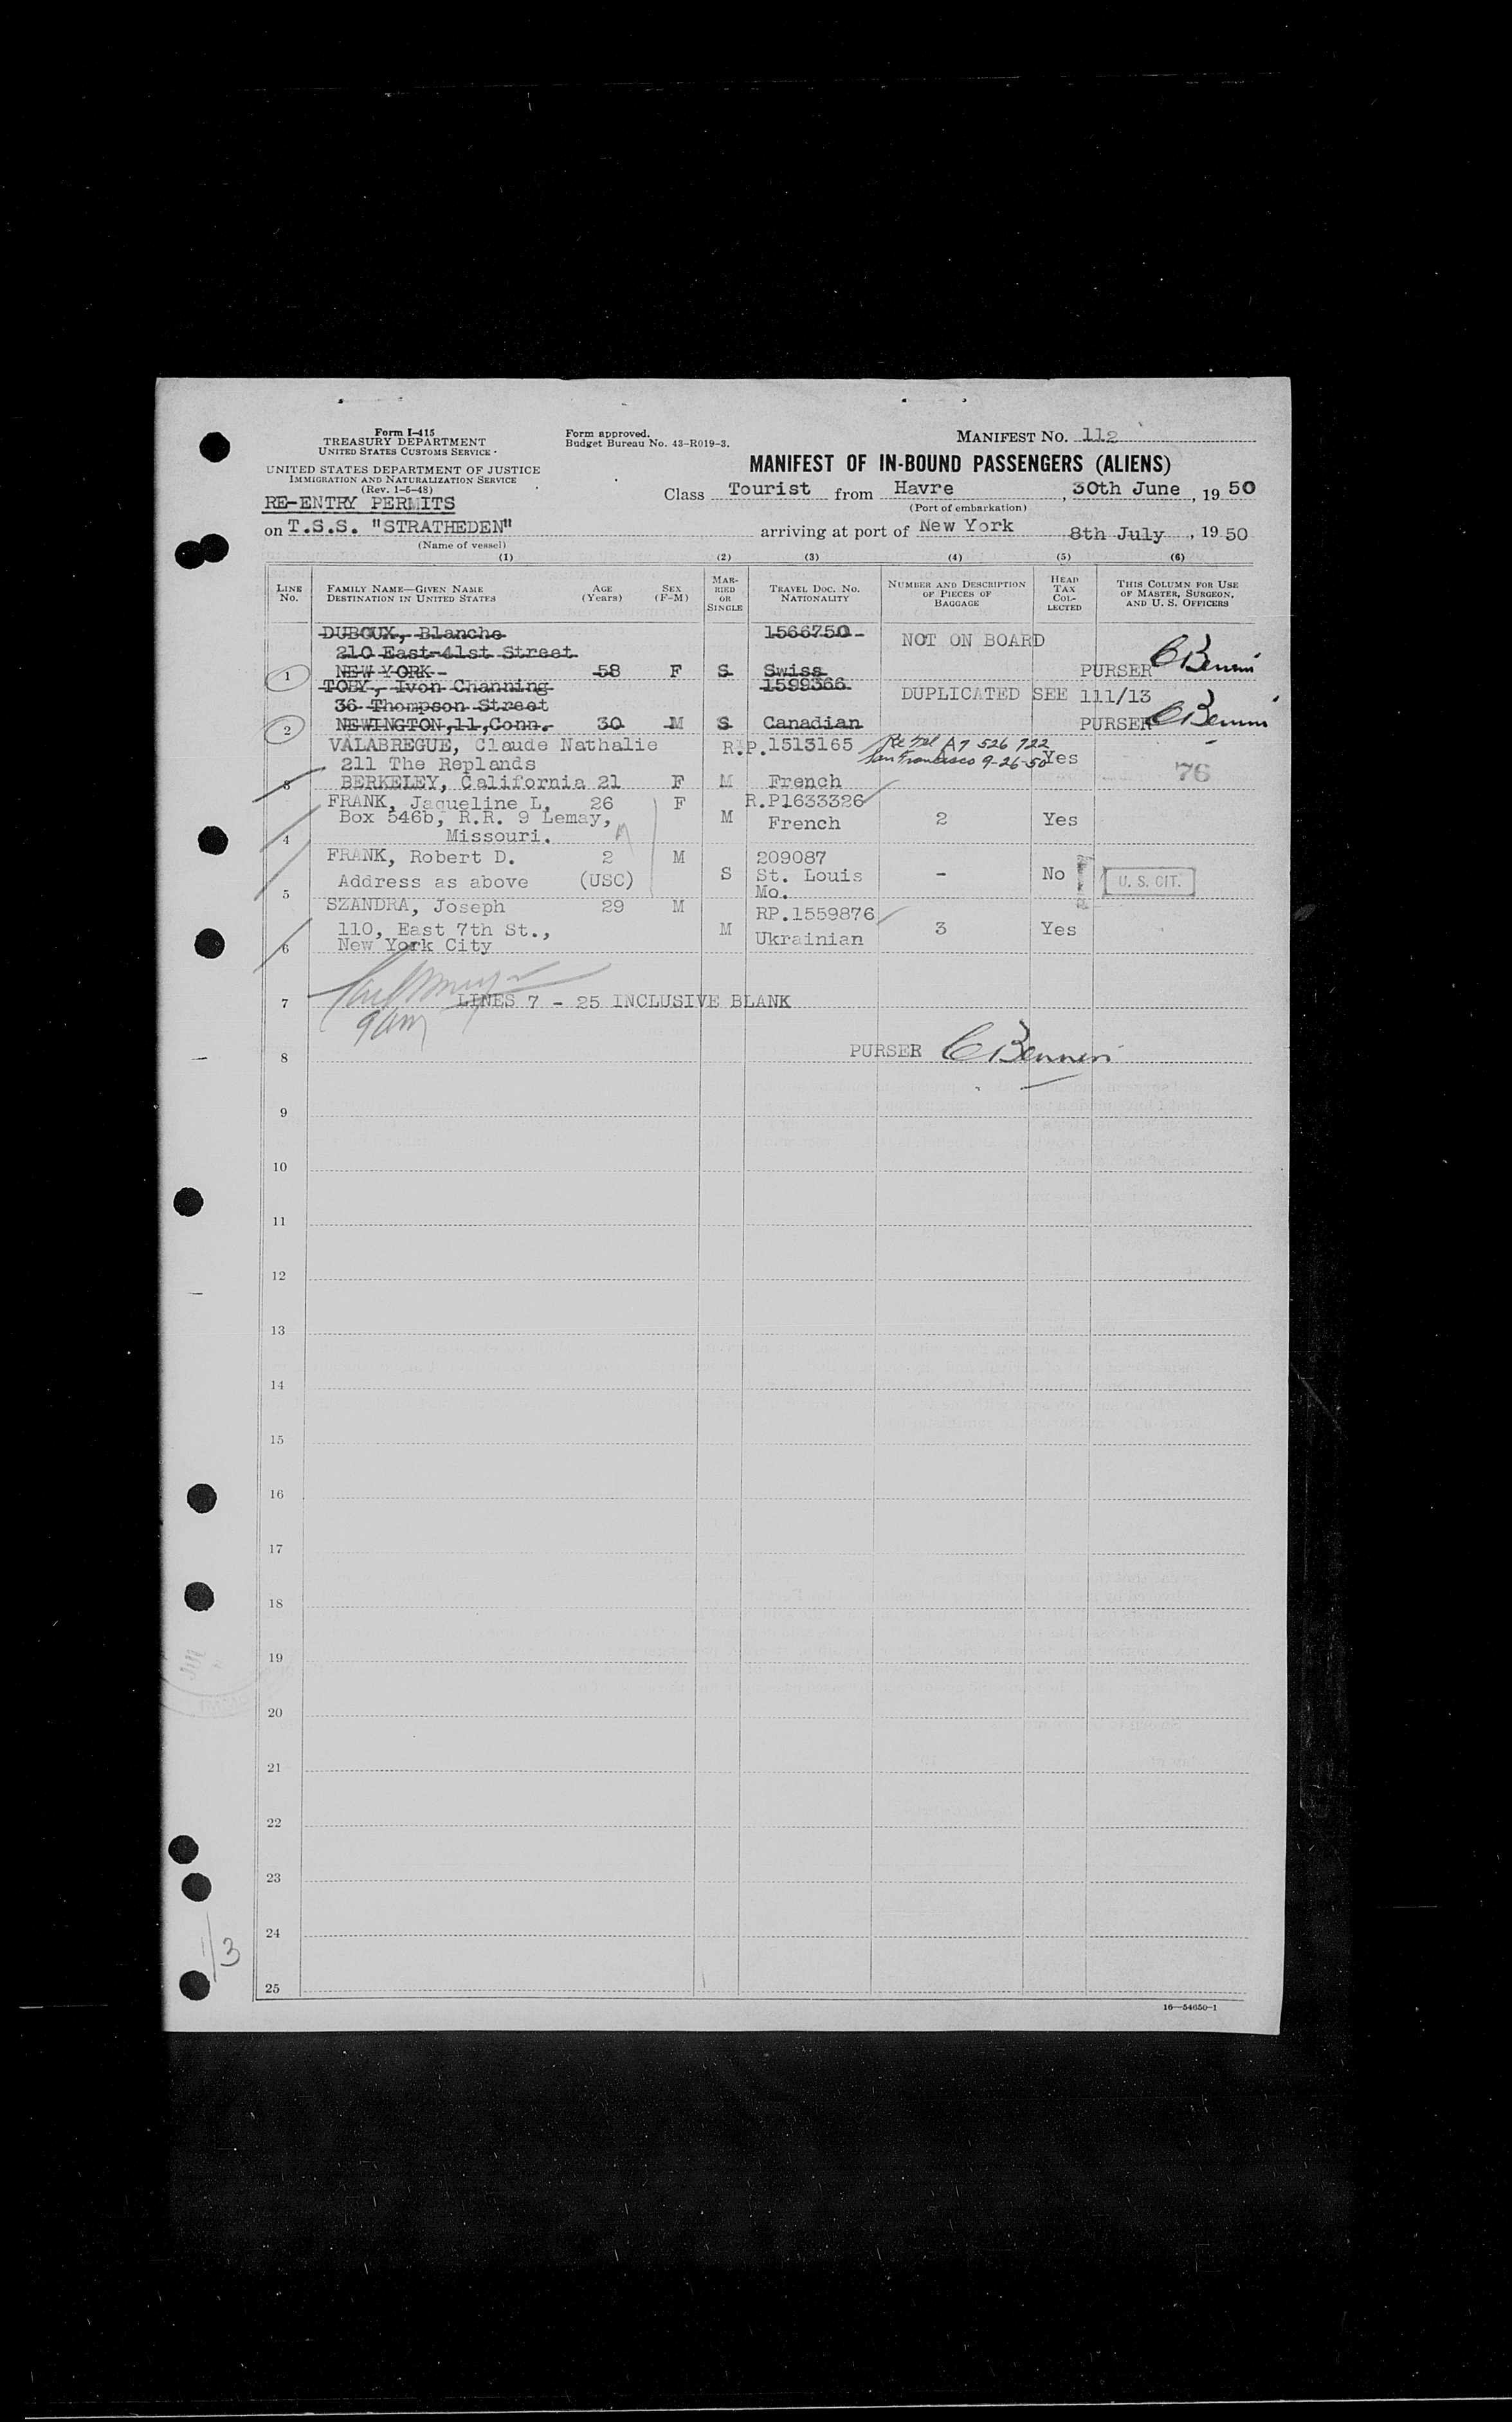 Form I-415
TREASURY DEPARTMENT
UNITED STATES CUSTOMS SERVICE
UNITED STATES DEPARTMENT OF JUSTICE
IMMIGRATION AND NATURALIZATION SERVICE
(Rev. 1-6-48)
RE-ENTRY PERMITS
Form approved.
Budget Bureau No. 43-R019-3.
MANIFEST NO. 112
MANIFEST OF IN-BOUND PASSENGERS (ALIENS)
Class Tourist from Havre, 30th June, 1950
(Port of embarkation)
on T.S.S. "STRATHEDEN" arriving at port of New York 8th July, 1950
(Name of vessel)
(1) (2) (3) (4) (5) (6)
LINE No. FAMILY NAME—GIVEN NAME DESTINATION IN UNITED STATES AGE (Years) SEX (F-M) MARRIED OR SINGLE TRAVEL DOC. NO. NATIONALITY NUMBER AND DESCRIPTION OF PIECES OF BAGGAGE HEAD TAX COLLECTED THIS COLUMN FOR USE OF MASTER, SURGEON, AND U. S. OFFICERS
DUBOUX, Blanche 1566750 NOT ON BOARD
210 East 41st Street
1 NEW YORK 58 F S Swiss PURSER
TOBY, Ivon Channing 1599366 DUPLICATED SEE 111/13
36 Thompson Street
2 NEWINGTON,11,Conn. 30 M S Canadian PURSER
VALABREGUE, Claude Nathalie R.P.1513165 A7 526 722
211 The Replands San Francisco 9-26-50 Yes 76
3 BERKELEY, California 21 F M French
FRANK, Jaqueline L. 26 F R.P1633326
Box 546b, R.R. 9 Lemay, M French 2 Yes
4 Missouri.
FRANK, Robert D. 2 M 209087
Address as above (USC) S St. Louis - No U. S. CIT.
5 Mo.
SZANDRA, Joseph 29 M RP.1559876
110, East 7th St., M Ukrainian 3 Yes
6 New York City
7 LINES 7 - 25 INCLUSIVE BLANK
8 PURSER
9
10
11
12
13
14
15
16
17
18
19
20
21
22
23
24
25
16—54650-1